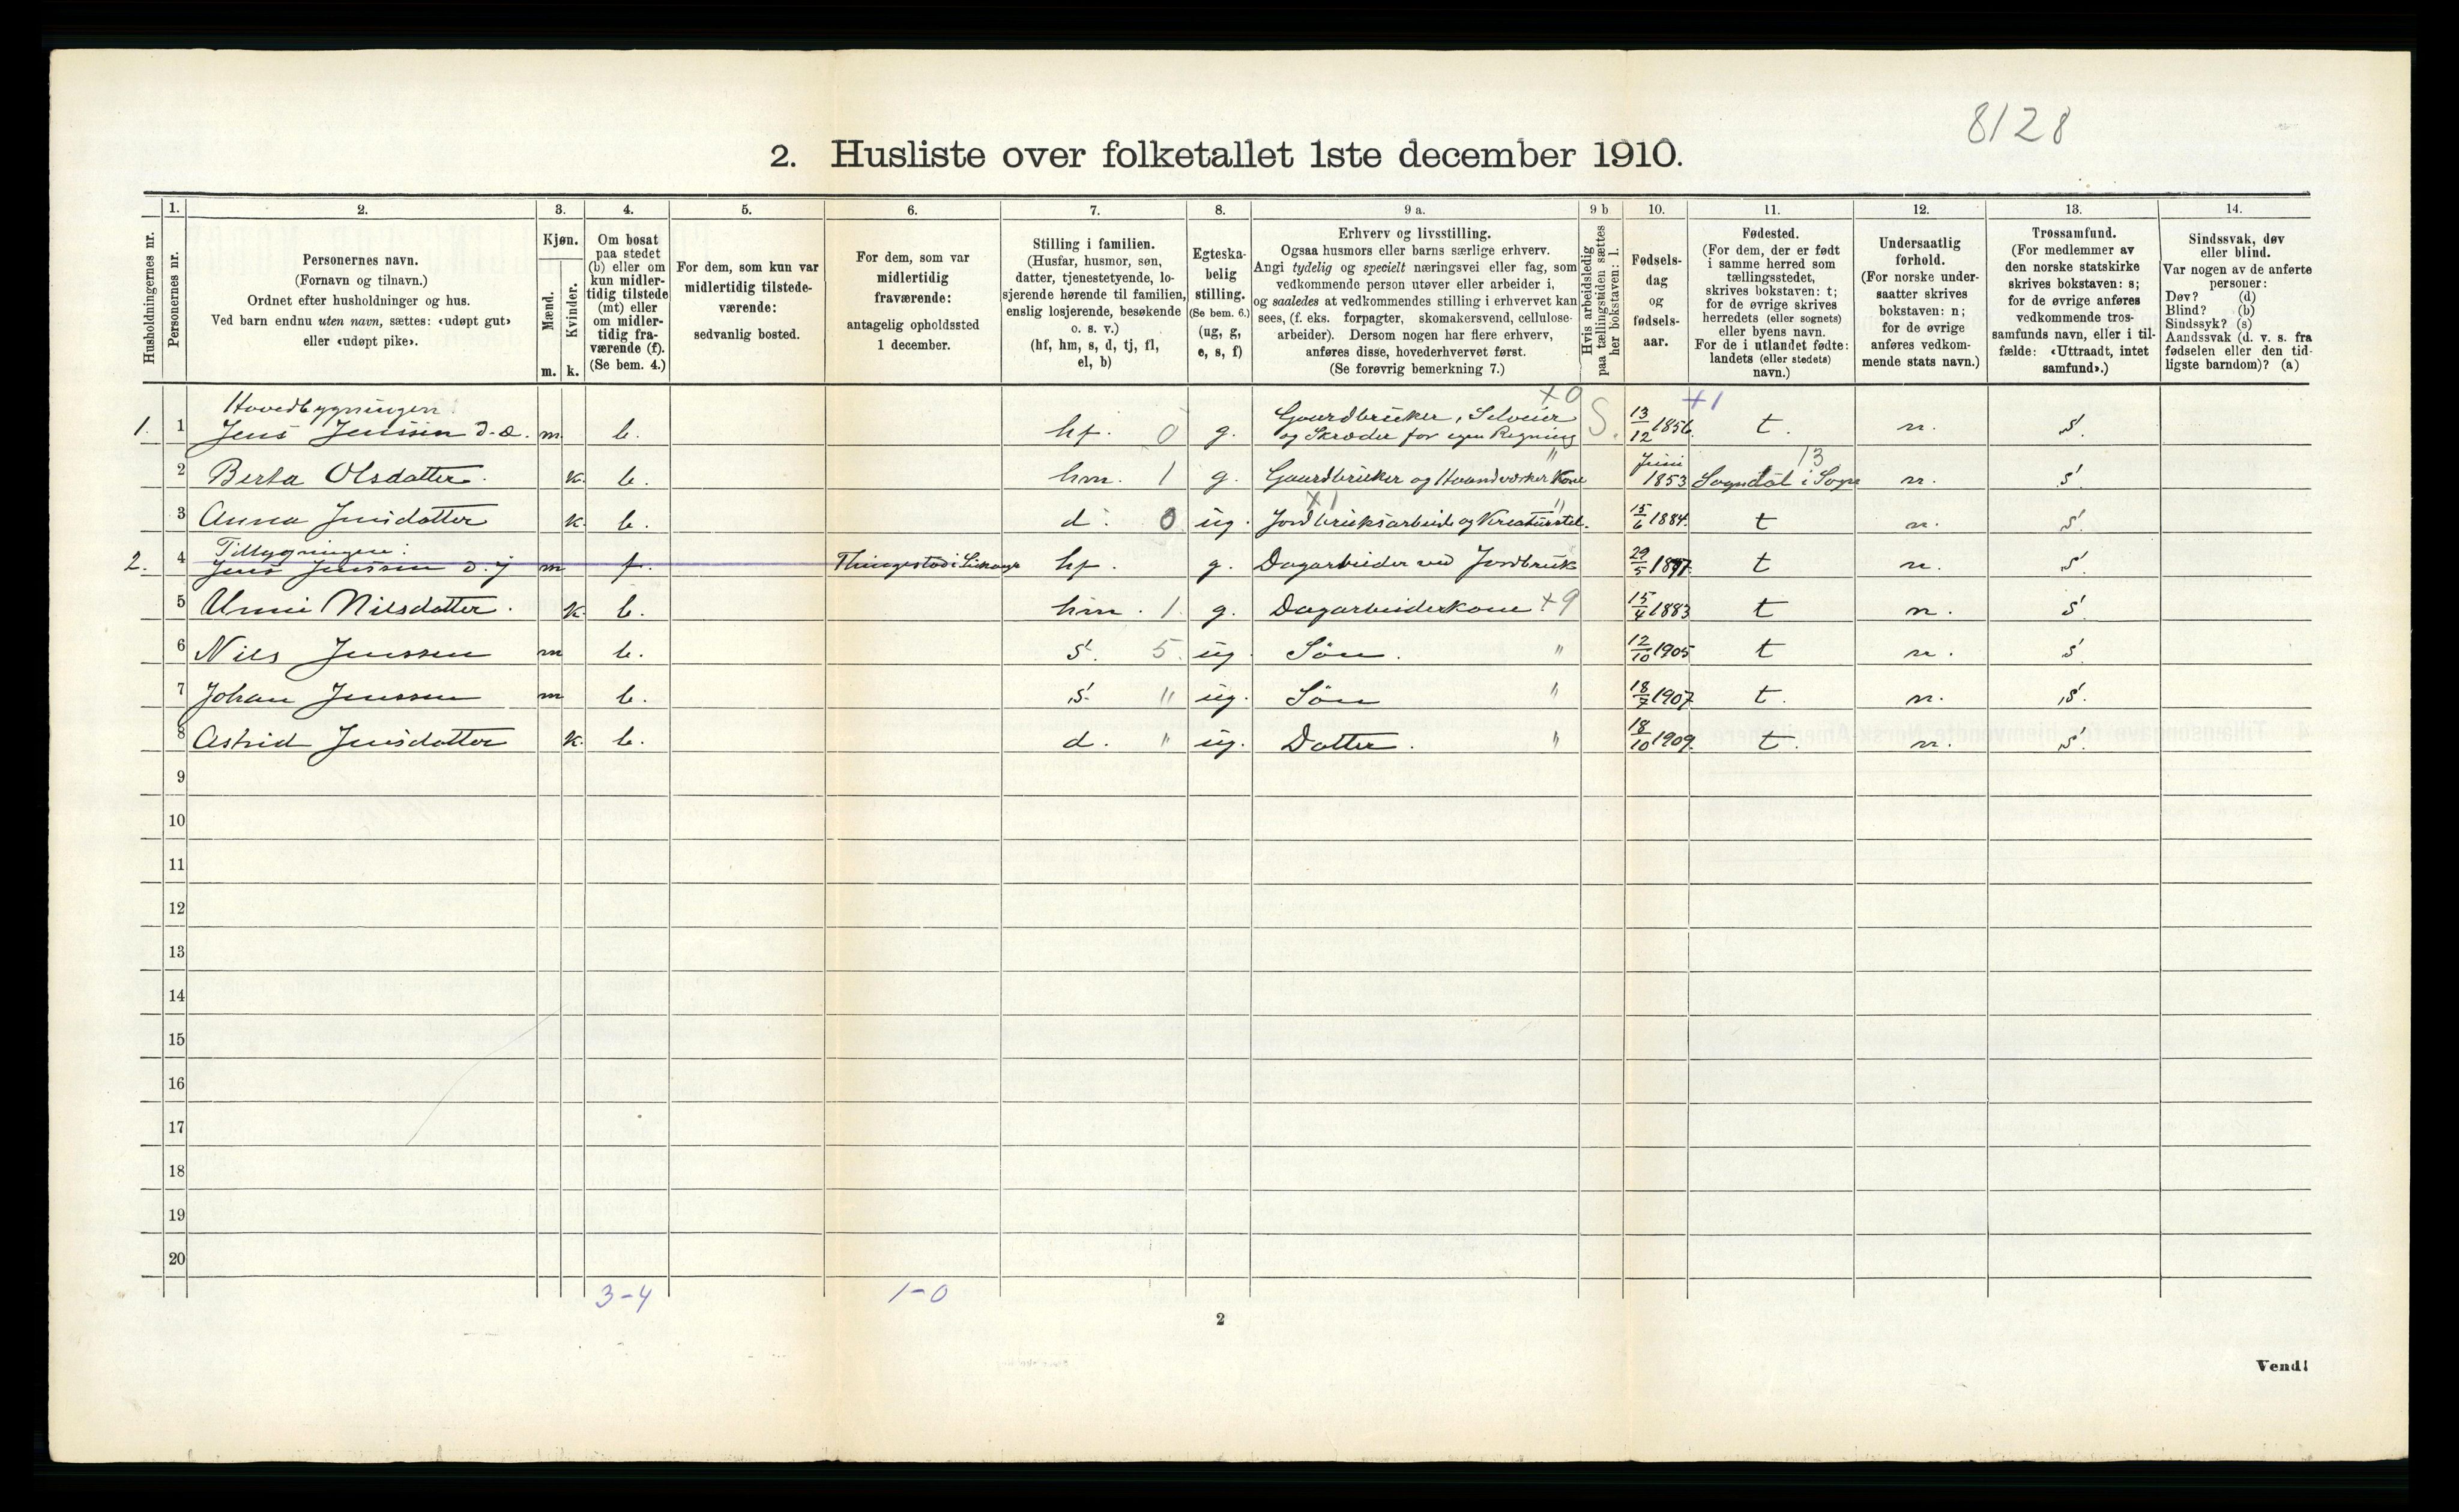 8128
2. Husliste over folketallet 1ste december 1910.
Husholdningernes nr.
1.
Personernes nr.
2.
Personernes navn.
(Fornavn og tilnavn.)
Ordnet efter husholdninger og hus.
Ved barn endnu uten navn, sættes: «udøpt gut»
eller «udøpt pike».
3.
Kjøn.
Mænd.
Kvinder.
m. k.
4.
Om bosat
paa stedet
(b) eller om
kun midler-
tidig tilstede
(mt) eller
om midler-
tidig fra-
værende (f).
(Se bem. 4.)
5.
For dem, som kun var
midlertidig tilstede-
værende:
sedvanlig bosted.
6.
For dem, som var
midlertidig
fraværende:
antagelig opholdssted
1 december.
7.
Stilling i familien.
(Husfar, husmor, søn,
datter, tjenestetyende, lo-
sjerende hørende til familien,
enslig losjerende, besøkende
o. s. v.)
(hf, hm, s, d, tj, fl,
el, b)
8.
Egteska-
belig
stilling.
(Se bem. 6.)
(ug, g,
e, s, f)
9 a.
Erhverv og livsstilling.
Ogsaa husmors eller barns særlige erhverv.
Angi tydelig og specielt næringsvei eller fag, som
vedkommende person utøver eller arbeider i,
og saaledes at vedkommendes stilling i erhvervet kan
sees, (f. eks. forpagter, skomakersvend, cellulose-
arbeider). Dersom nogen har flere erhverv,
anføres disse, hovederhvervet først.
(Se forøvrig bemerkning 7.)
9 b
Hvis arbeidsledig
paa tællingstiden sættes
her bokstaven: l.
10.
Fødsels-
dag
og
fødsels-
aar.
11.
Fødested.
(For dem, der er født
i samme herred som
tællingsstedet,
skrives bokstaven: t;
for de øvrige skrives
herredets (eller sognets)
eller byens navn.
For de i utlandet fødte:
landets (eller stedets)
navn.)
12.
Undersaatlig
forhold.
(For norske under-
saatter skrives
bokstaven: n;
for de øvrige
anføres vedkom-
mende stats navn.)
13.
Trossamfund.
(For medlemmer av
den norske statskirke
skrives bokstaven: s;
for de øvrige anføres
vedkommende tros-
samfunds navn, eller i til-
fælde: «Uttraadt, intet
samfund».)
14.
Sindssvak, døv
eller blind.
Var nogen av de anførte
personer:
Døv? (d)
Blind? (b)
Sindssyk? (s)
Aandssvak (d. v. s. fra
fødselen eller den tid-
ligste barndom)? (a)
Hovedbygningen +0 +1
1. 1 Jens Jenssen d.æ. m b. hf. 0 g. Gaardbruker, Selveier og Skræder for egen Regning S. 13/12 1856 t. n. s.
2 Berta Olsdatter. k. b. hm. 1 g. Gaardbruker og Haandverker Kone " Juni 1853 Sogndal i Sogn 13 n. s.
3 Anna Jensdatter k. b. d. 0 ug. Jordbruksarbeide og Kreaturstel. +1 " 15/6 1884. t n. s.
Tilbygningen:
2. 4 Jens Jenssen d.y m f. hf. g. Dagarbeider ved Jordbruk 29/5 t n. s.
5 Unni Nilsdatter. k. b. hm. 1. g. Dagarbeiderkone +9 15/4 1883 t n. s.
6 Nils Jenssen m b. s. 5. ug Søn. " 12/10 1905 t n. s.
7 Johan Jenssen m b. s. " ug. Søn " 18/7 1907 t. n. s.
8 Astrid Jensdatter k. b. d. " ug. Datter. " 18/10 1909. t. n. s.
9
10
11
12
13
14
15
16
17
18
19
20
3-4 1-0
2
Vend!